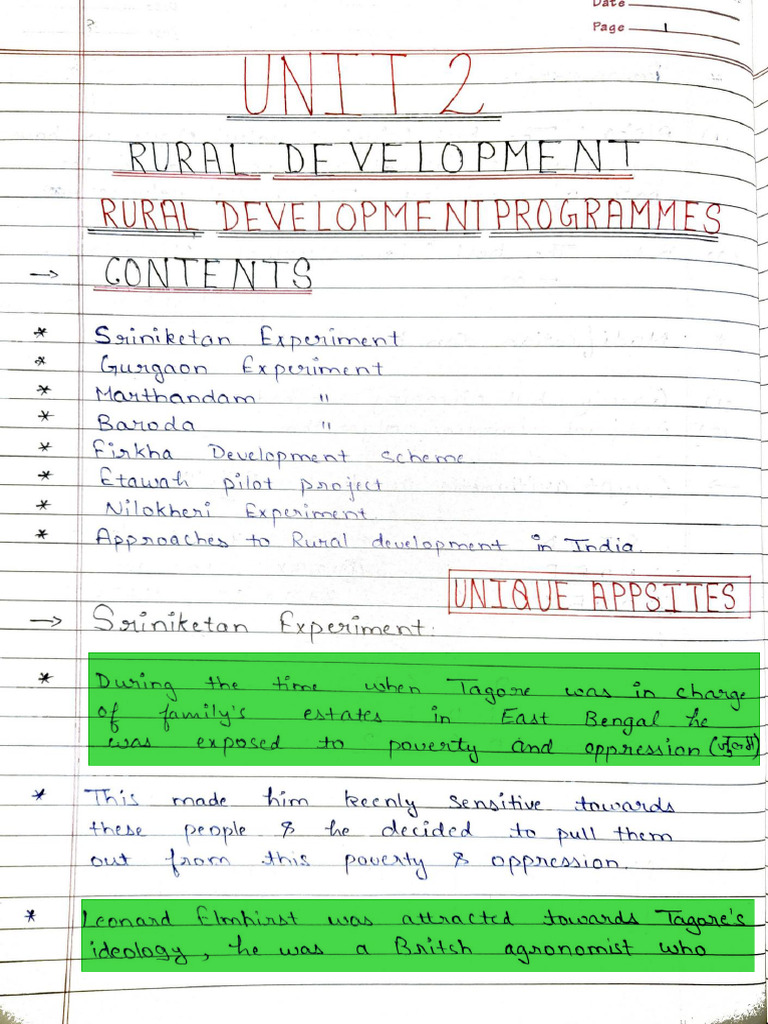 Date
Page 1
UNIT 2
RURAL DEVELOPMENT
RURAL DEVELOPMENT PROGRAMMES
→ CONTENTS
* Sriniketan Experiment
* Gurgaon Experiment
* Marthandam "
* Baroda "
* Firkha Development scheme
* Etawah pilot project
* Nilokheri Experiment
* Approaches to Rural development in India.
UNIQUE APPSITES
→ Sriniketan Experiment:
* During the time when Tagore was in charge
of family's estates in East Bengal he
was exposed to poverty and oppression (जुल्म)
* This made him keenly sensitive towards
these people & he decided to pull them
out from this poverty & oppression.
* Leonard Elmhirst was attracted towards Tagore's
ideology, he was a Britsh agronomist who